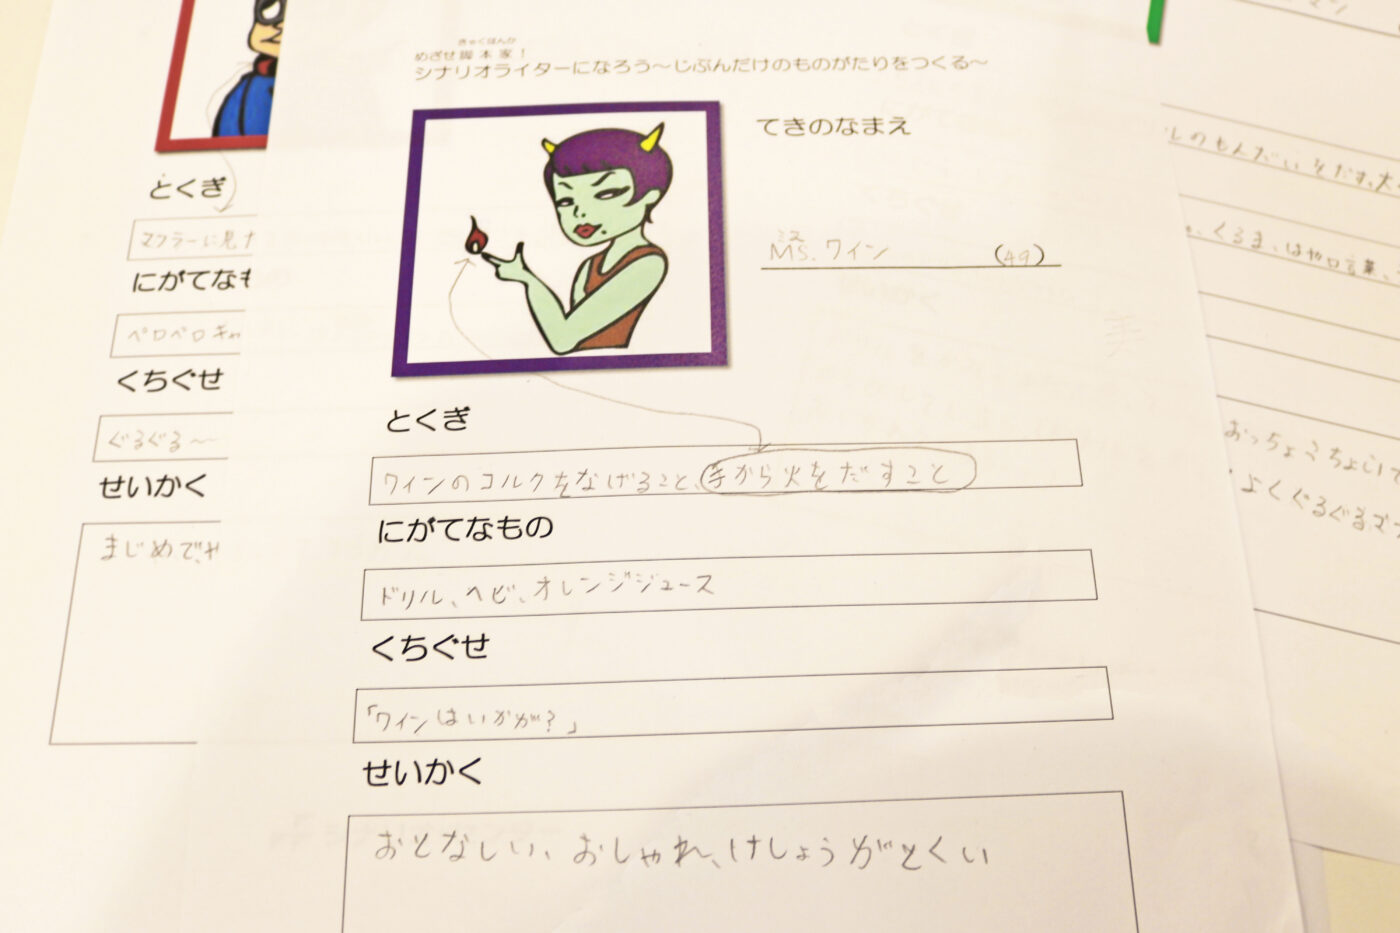 きゃくほんか
めざせ脚本家！
シナリオライターになろう～じぶんだけのものがたりをつくる～
てきのなまえ
ミス
Ms. ワイン (49)
とくぎ
ワインのコルクをなげること、手から火をだすこと
にがてなもの
ドリル、ヘビ、オレンジジュース
くちぐせ
「ワインはいかが？」
せいかく
おとなしい、おしゃれ、けしょうがとくい
とくぎ
マフラーに見
にがてなも
ペロペロキャ
くちぐせ
ぐるぐる～
せいかく
まじめで、や
のもんだいをだす。大
、くるま、はや口言葉、
おっちょこちょいで
よくぐるぐるマ